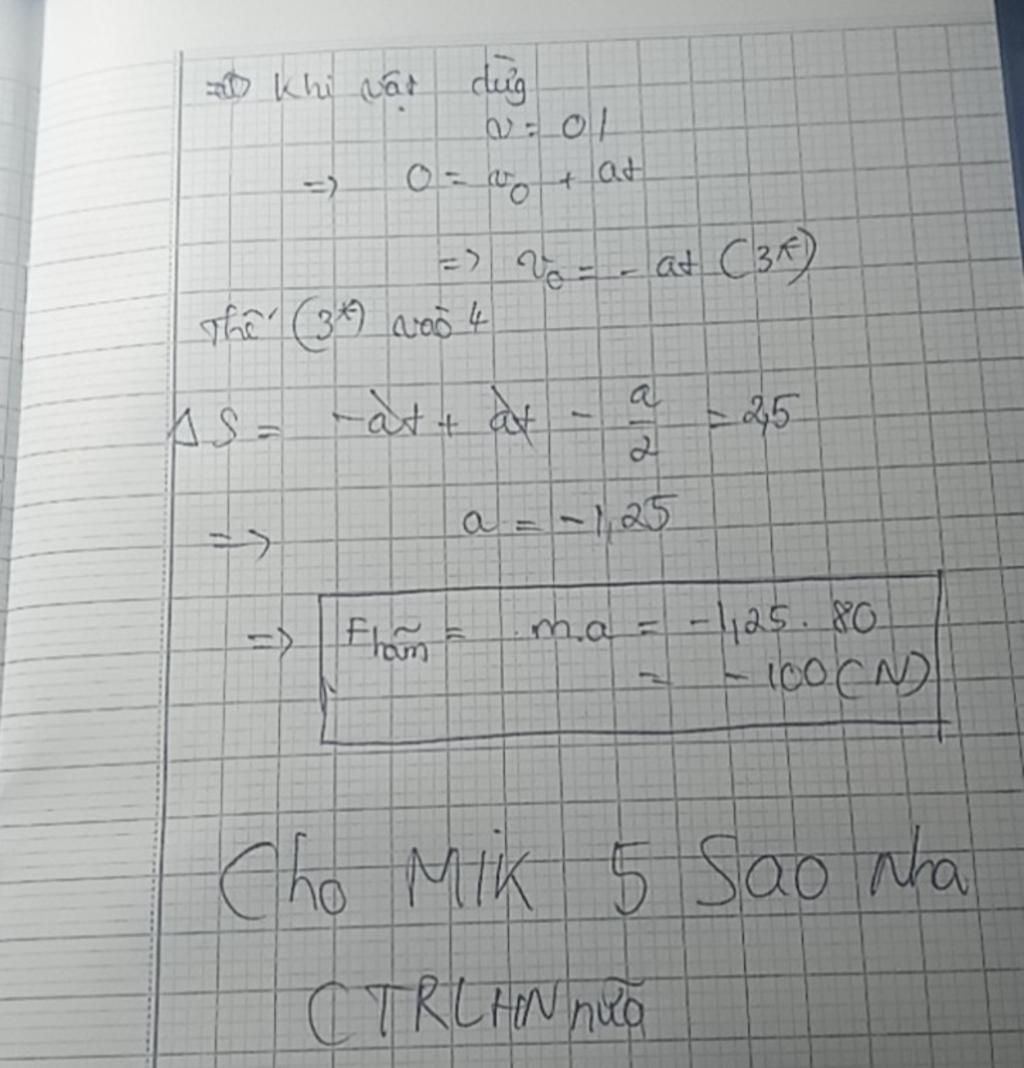 => Khi vật dừg
v = 0 /
=> 0 = v₀ + at
=> v₀ = - at (3*)
Thế (3*) vào 4
ΔS = -at + at - a/2 = 2,5
=> a = -1,25
=> Fhãm = m.a = -1,25. 80
= - 100 (N)
Cho Mik 5 Sao nha
CTRLHN nữa